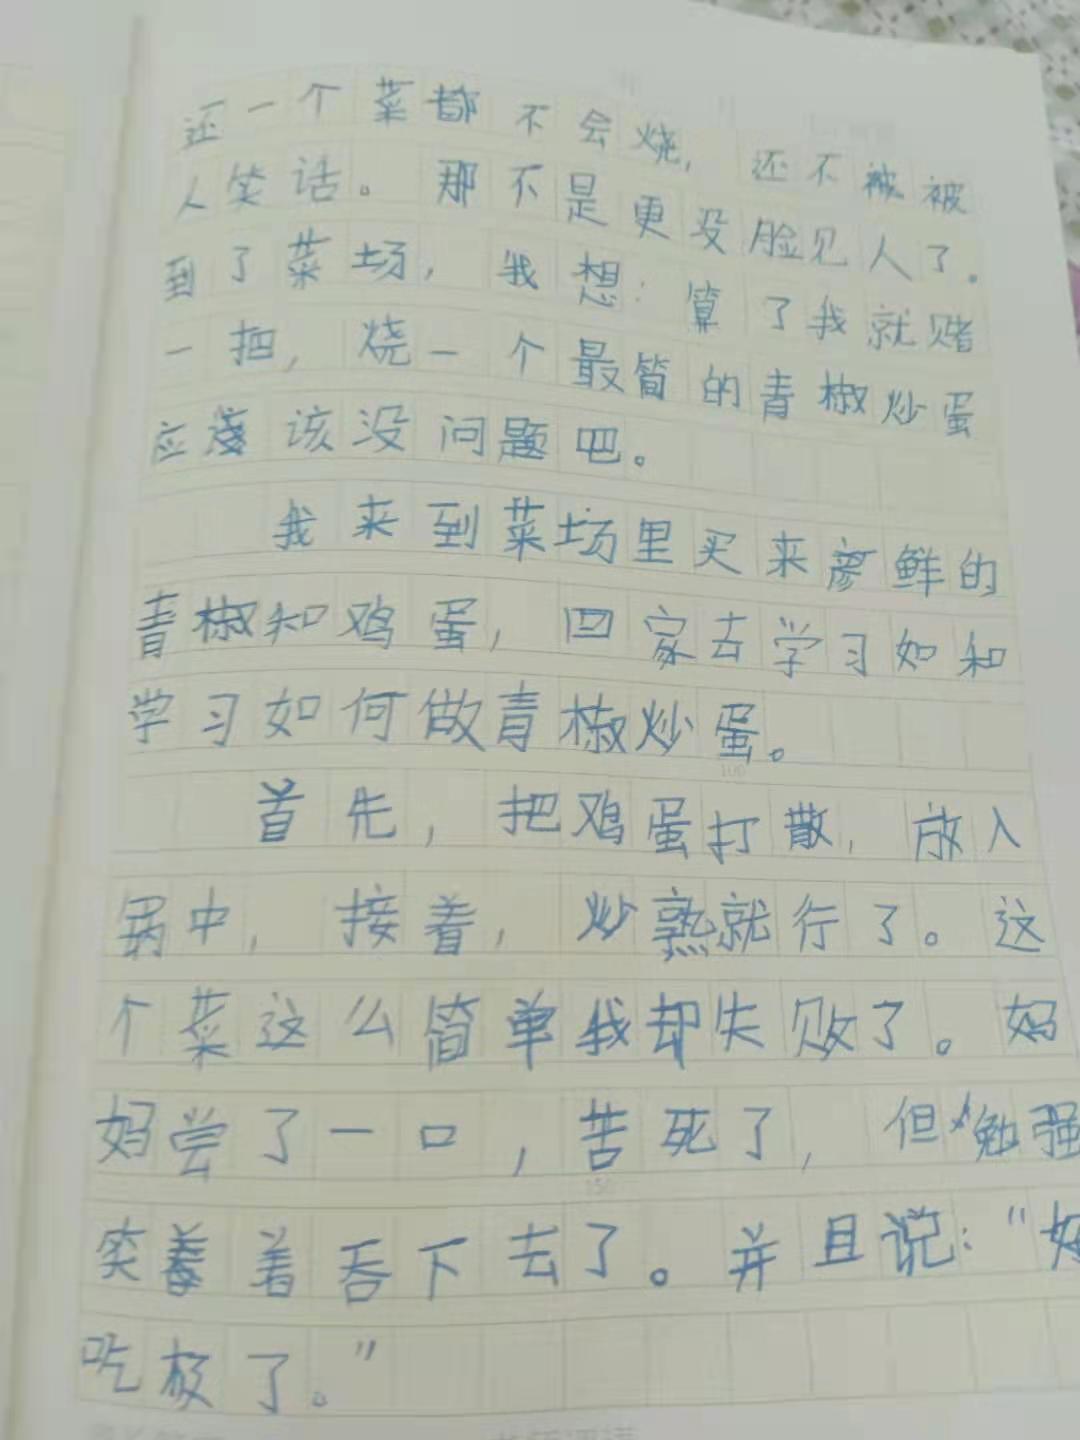 还一个菜都不会烧，还不被被
人笑话。那不是更没脸见人了。
到了菜场，我想：算了我就赌
一把，烧一个最简的青椒炒蛋
应该没问题吧。
我来到菜场里买来鲜的
青椒和鸡蛋，回家去学习如和
学习如何做青椒炒蛋。
首先，把鸡蛋打散，放入
锅中，接着，炒熟就行了。这
个菜这么简单我却失败了。妈
妈尝了一口，苦死了，但勉强
笑着着吞下去了。并且说：“好
吃极了。”